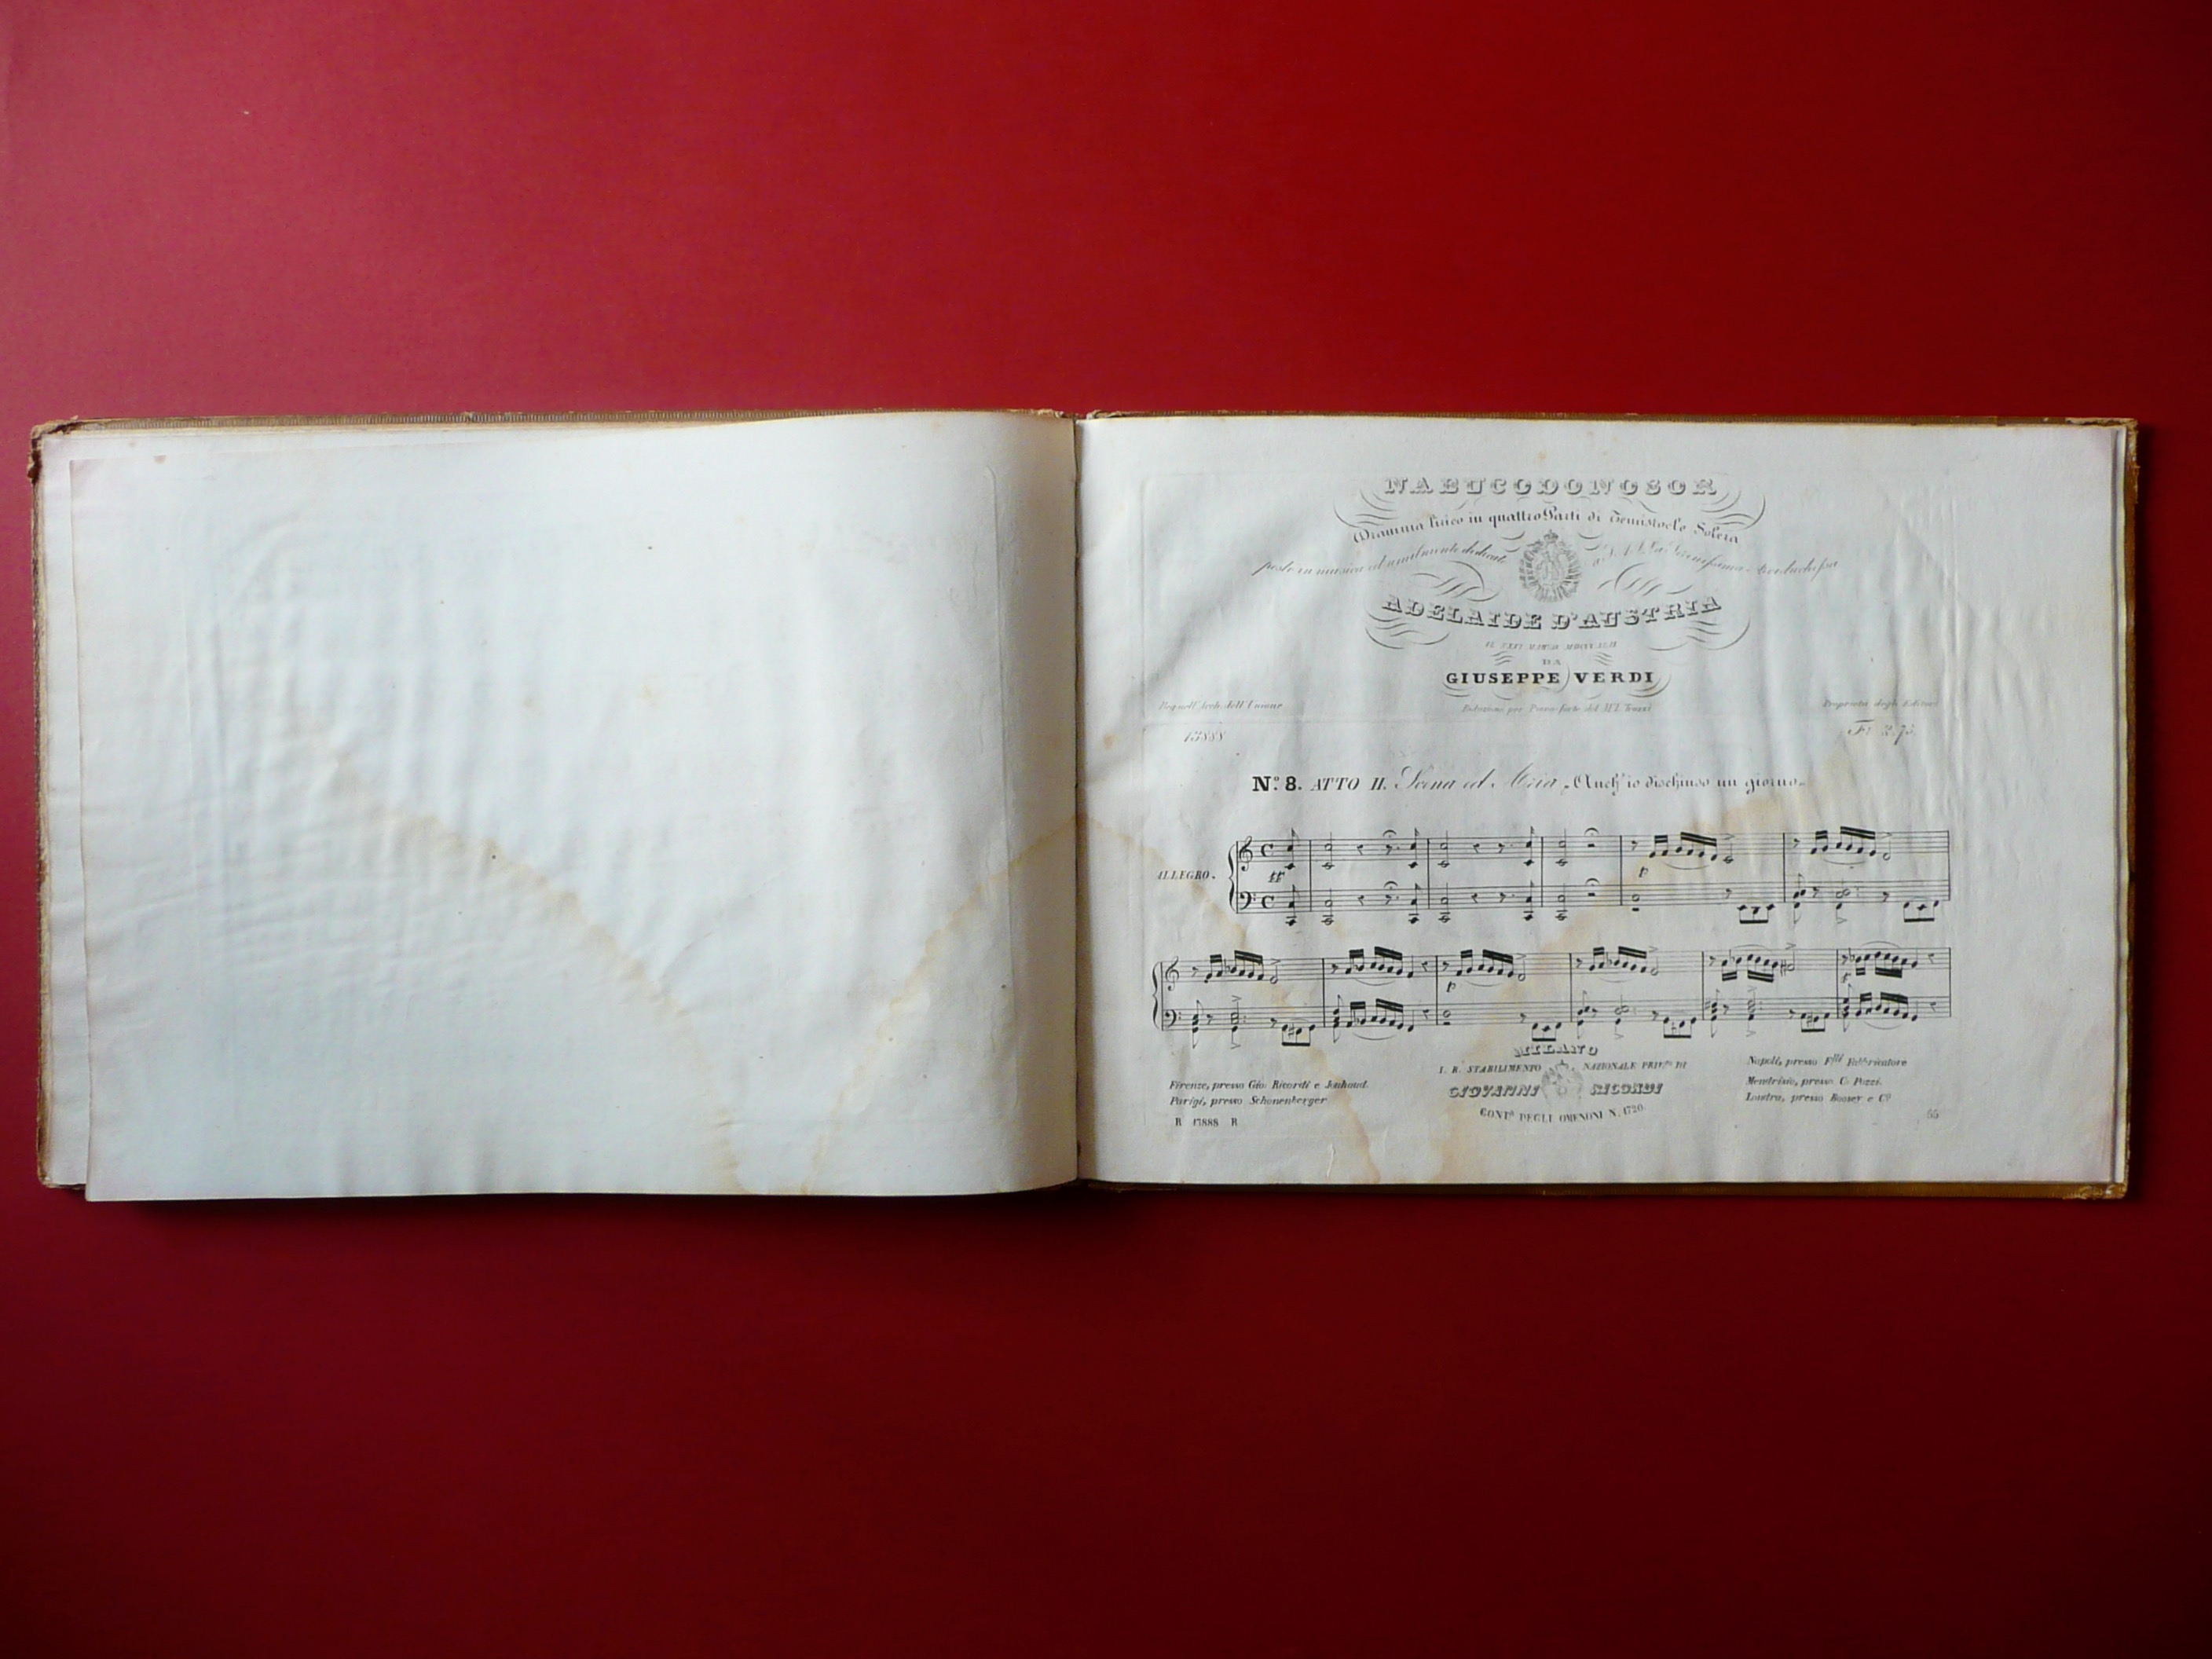 NABUCODONOSOR
Dramma lirico in quattro Parti di Temistocle Solera
posto in musica ed umilmente dedicato a S. A. I. la Serenissima Arciduchessa
ADELAIDE D'AUSTRIA
IL XXXI MARZO MDCCCXLII
DA
GIUSEPPE VERDI
Reg. nell' Arch. dell' Unione
Riduzione per Piano-forte del M.
Proprietà degli Editori
13888
Fr. 2.75.
N.º 8. ATTO II. Scena ed Aria „Anch' io dischiuso un giorno„
ALLEGRO.
ff
p
p
f
MILANO
I. R. STABILIMENTO NAZIONALE PRIV.to DI
GIOVANNI RICORDI
CONT.a DEGLI OMENONI N. 1720.
Firenze, presso Gio. Ricordi e Jouhaud.
Parigi, presso Schonenberger
Napoli, presso F.lli Fabbricatore
Mendrisio, presso C. Pozzi.
Londra, presso Boosey e C.o
R 13888 R